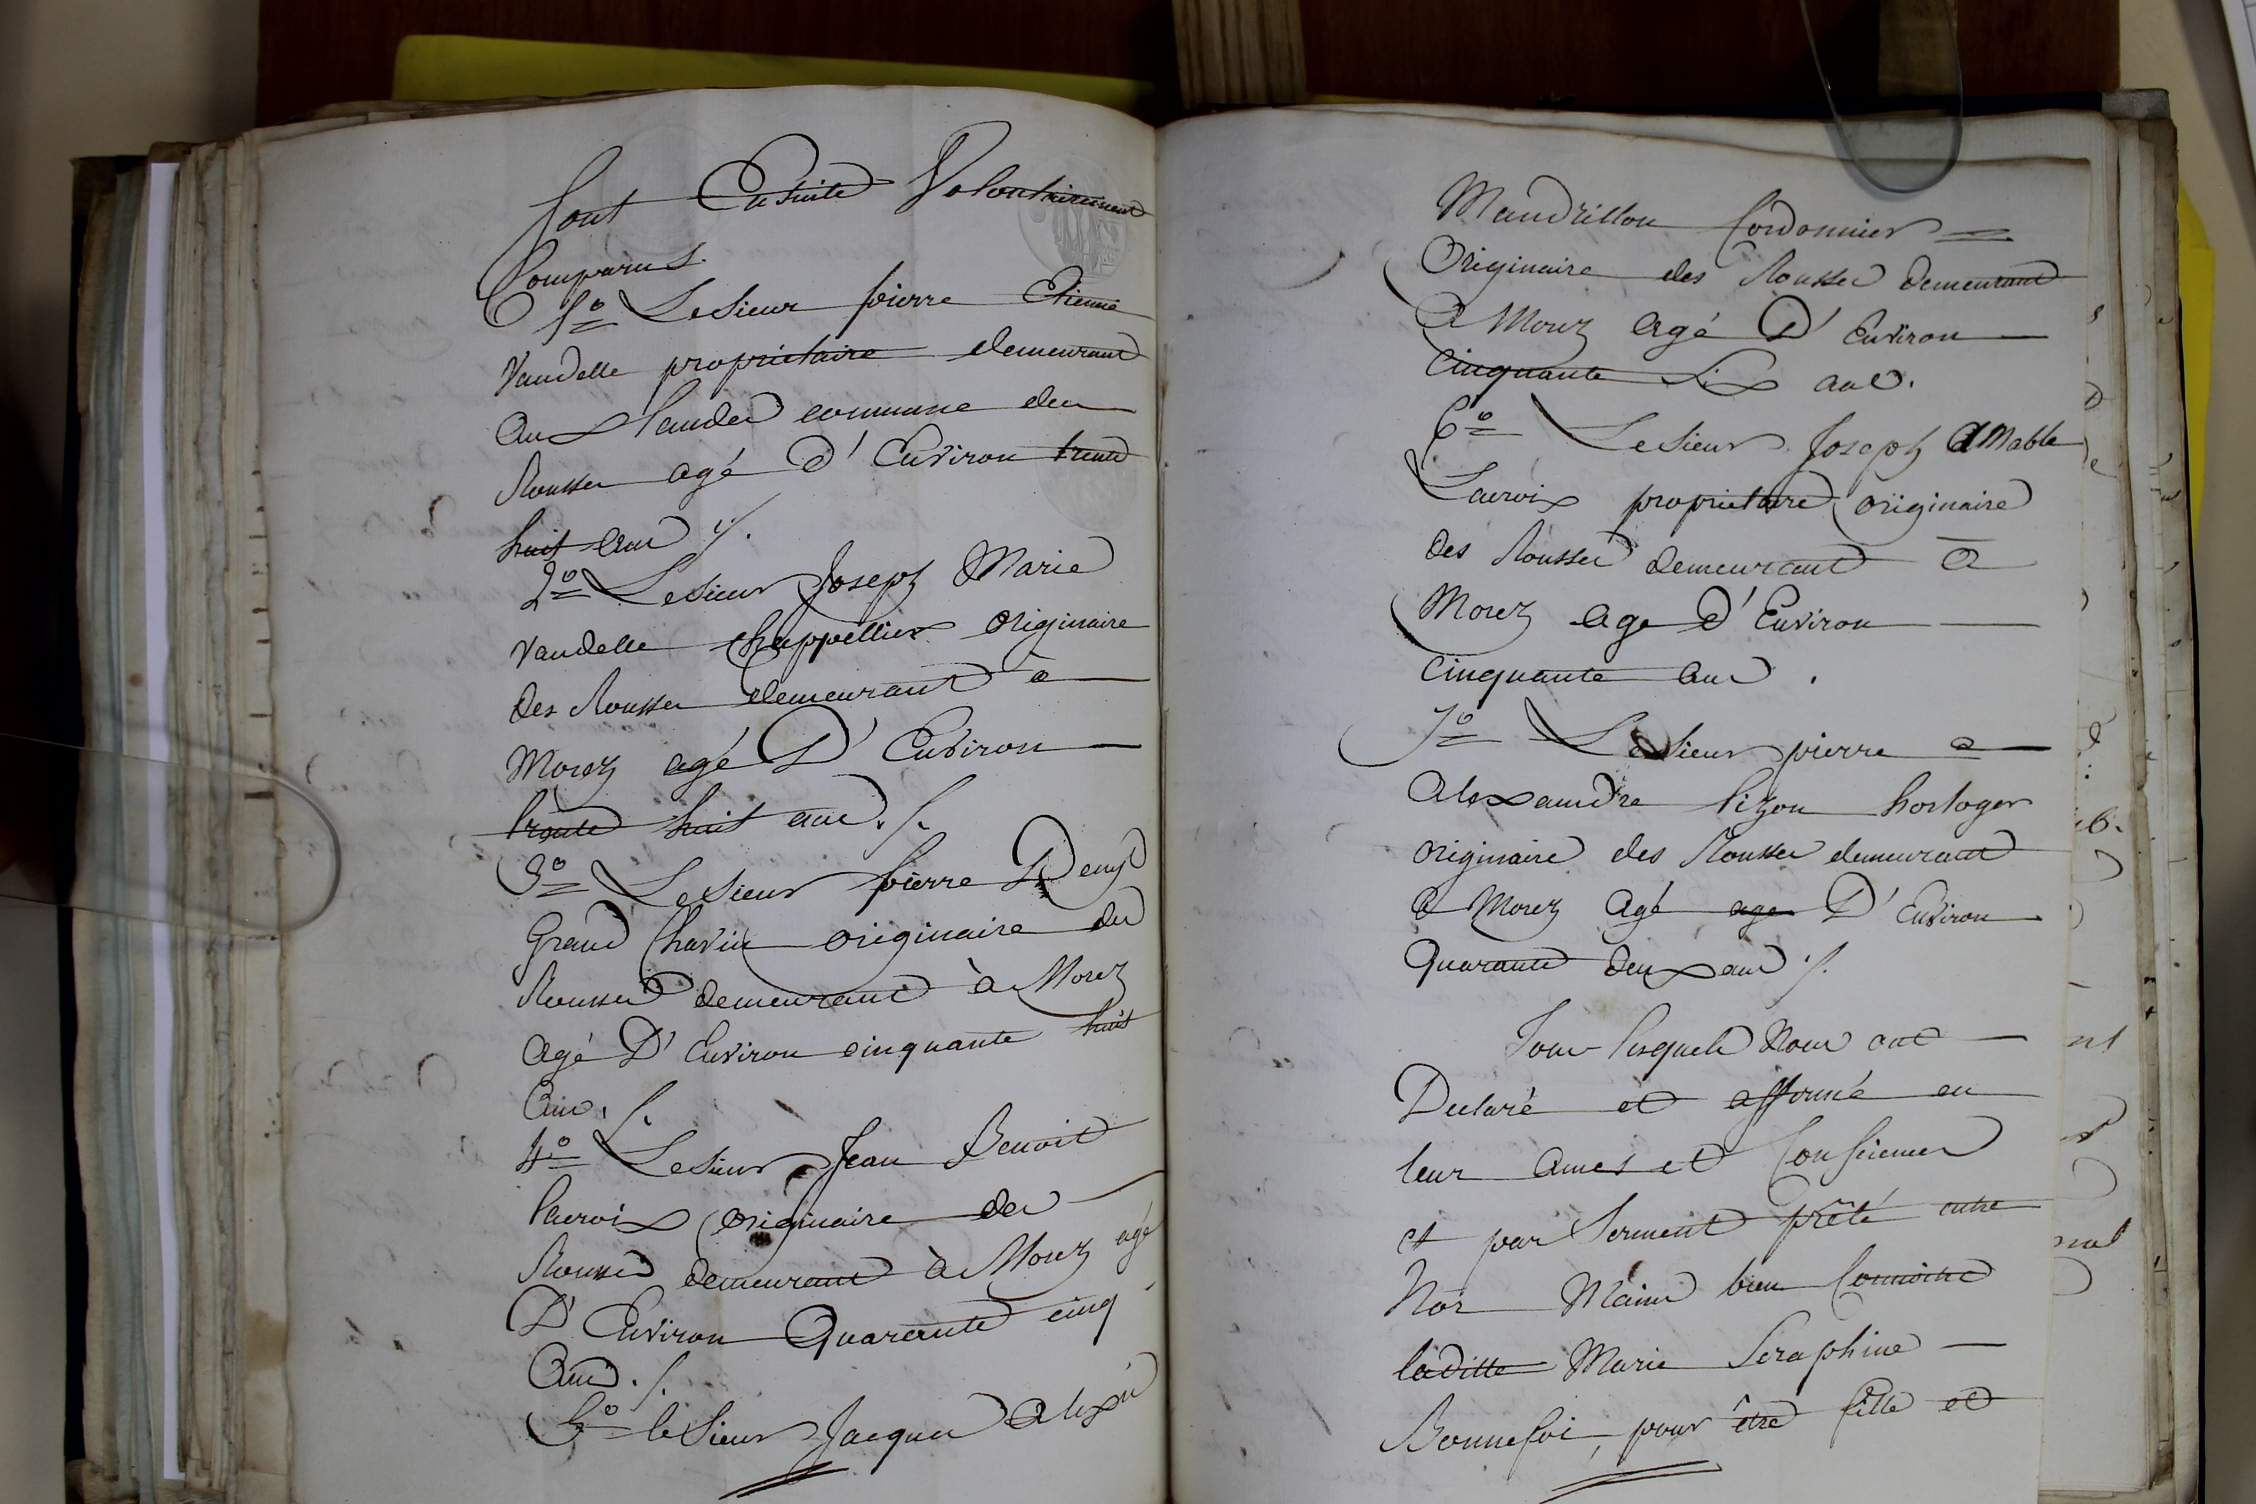 Sont Ensuite Volontairement
Comparus.
1o Le Sieur pierre Etienne
Vandelle propriétaire demeurant
aux Landes commune des
Rousses agé d'Environ trente
huit ans ./.
2o Le Sieur Joseph Marie
Vandelle Chappellier Originaire
des Rousses demeurant à
Morez agé D'Environ
trente huit ans ./.
3o Le Sieur pierre Denys
Grand Chavin originaire des
Rousses demeurant à Morez
agé D'Environ cinquante huit
Ans ./.
4o Le Sieur Jean Benoit
Lacroix Originaire des
Rousses demeurant à Morez agé
D'Environ Quarante cinq
Ans ./.
5o le Sieur Jacques Alexis
Mandrillon Cordonnier
Originaire des Rousses demeurant
à Morez agé D'Environ
Cinquante Six ans.
6o Le Sieur Joseph Amable
Lacroix propriétaire originaire
des Rousses demeurant à
Morez age D'Environ
Cinquante ans .
7o Le Sieur pierre
Alexandre Lizon horloger
originaire des Rousses demeurant
à Morez Agé age D'Environ
Quarante deux ans ./.
Tous lesquels Nous ont
Declaré et affirmé en
leur ames et Consciences
et par Serment prêté entre
Nos Mains bien Connoitre
laditte Marie Seraphine
Bonnefoi, pour être fille et